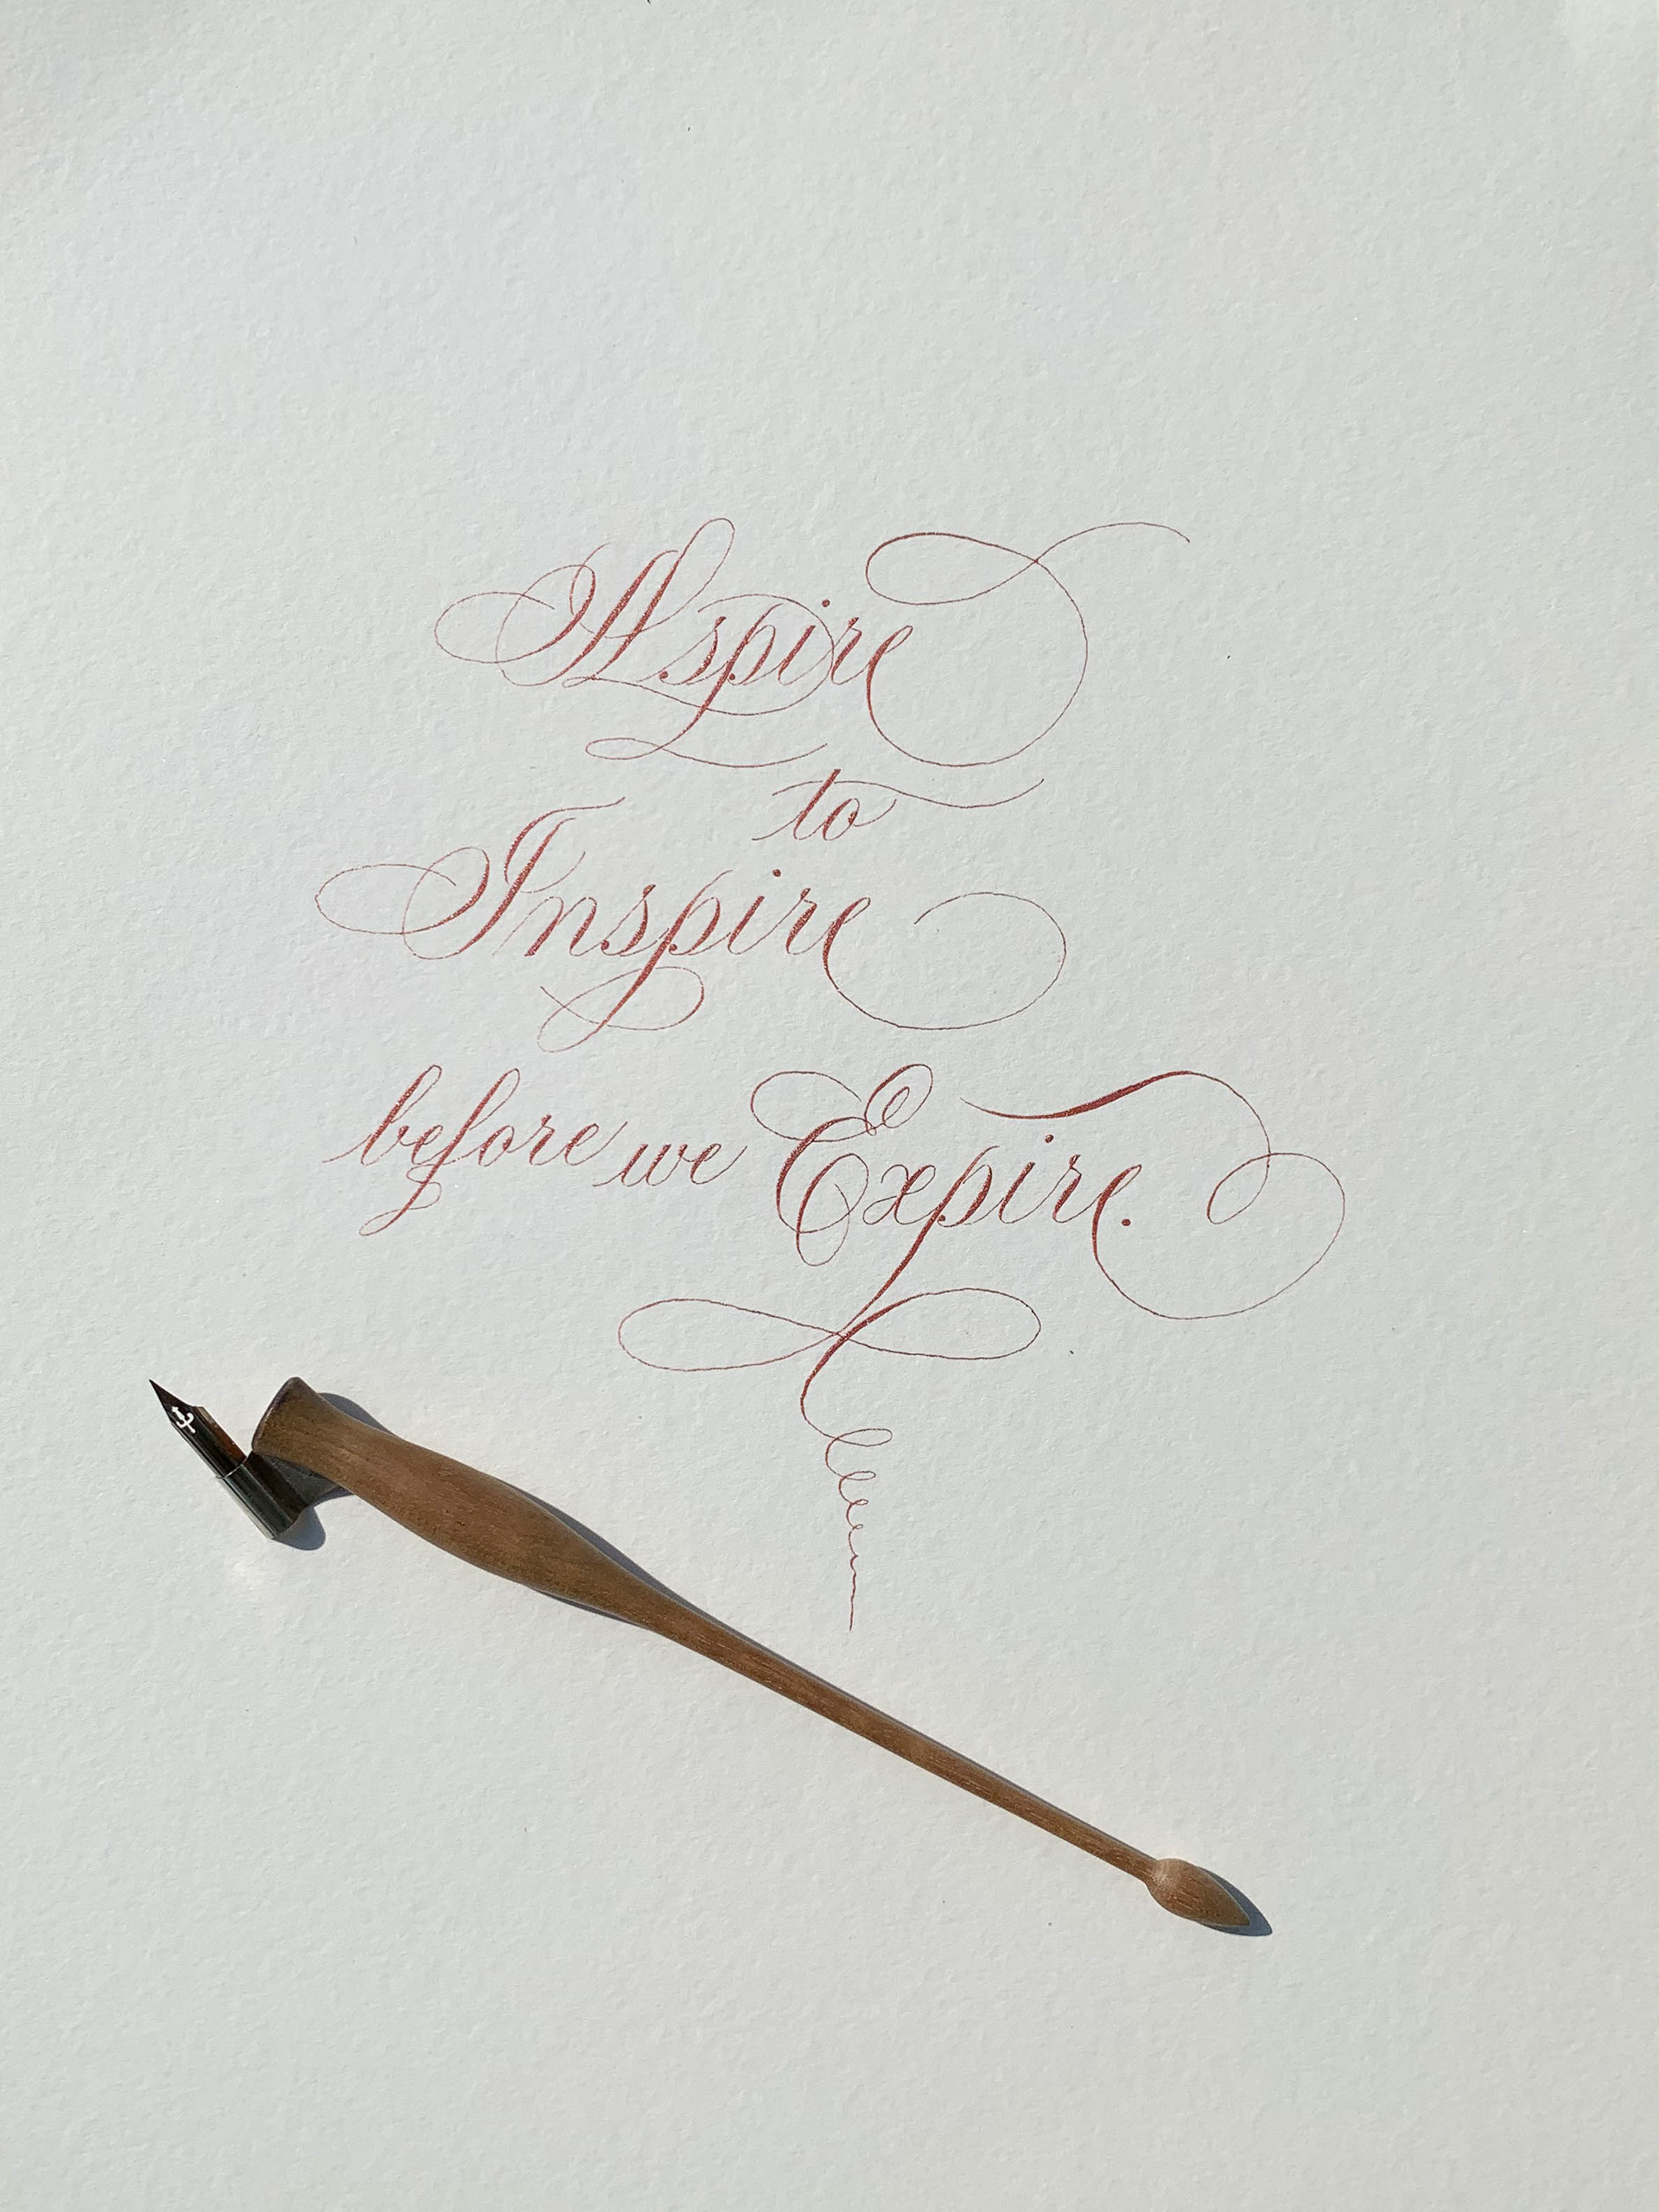 Aspire
to
Inspire
before we Expire.